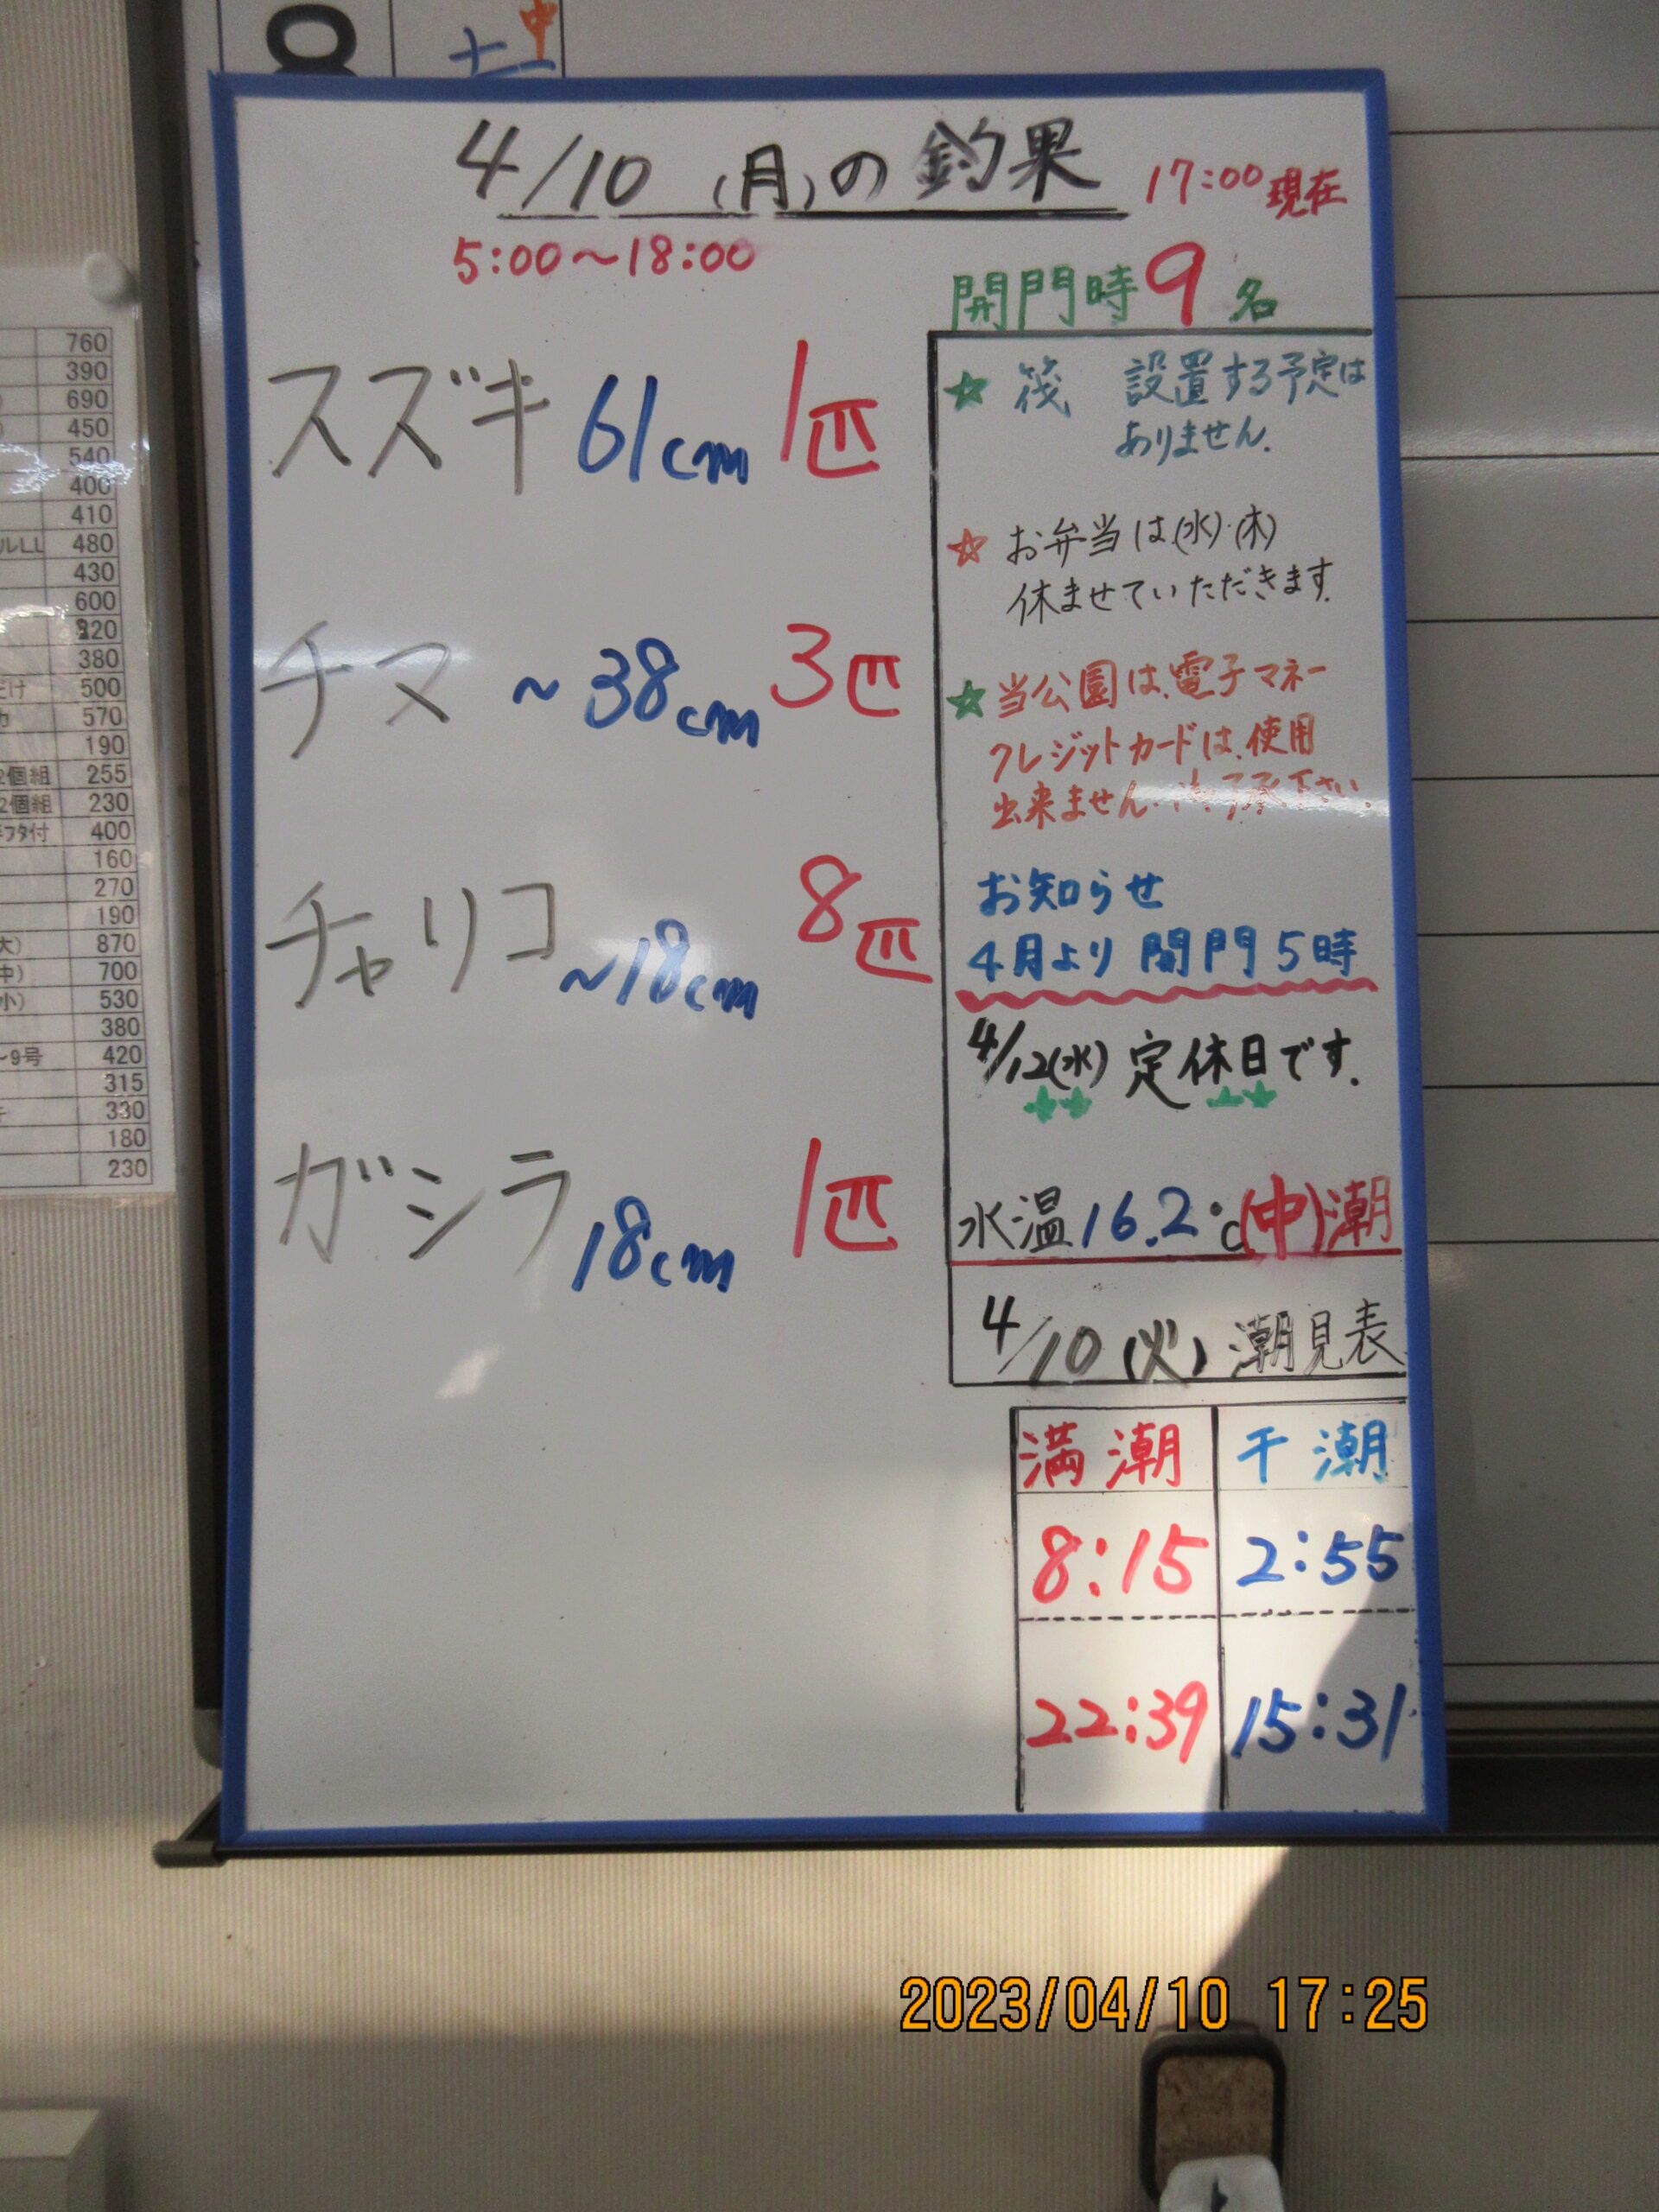 4/10 (月)の釣果 17:00現在
5:00～18:00
開門時9名
スズキ 61cm 1匹
チマ ～38cm 3匹
チャリコ ～18cm 8匹
ガシラ 18cm 1匹
☆ 筏 設置する予定は
ありません.
☆ お弁当は(水)・(木)
休ませていただきます.
☆ 当公園は、電子マネー
クレジットカードは、使用
出来ません.御了承下さい.
お知らせ
4月より 開門5時
4/12(水) 定休日です.
水温16.2℃(中)潮
4/10(火) 潮見表
満潮 干潮
8:15 2:55
22:39 15:31
760
390
690
450
540
400
410
ルLL 480
430
600
380
500
570
190
2個組 255
2個組 230
フタ付 400
160
270
190
大) 870
中) 700
小) 530
380
～9号 420
315
330
180
230
2023/04/10 17:25